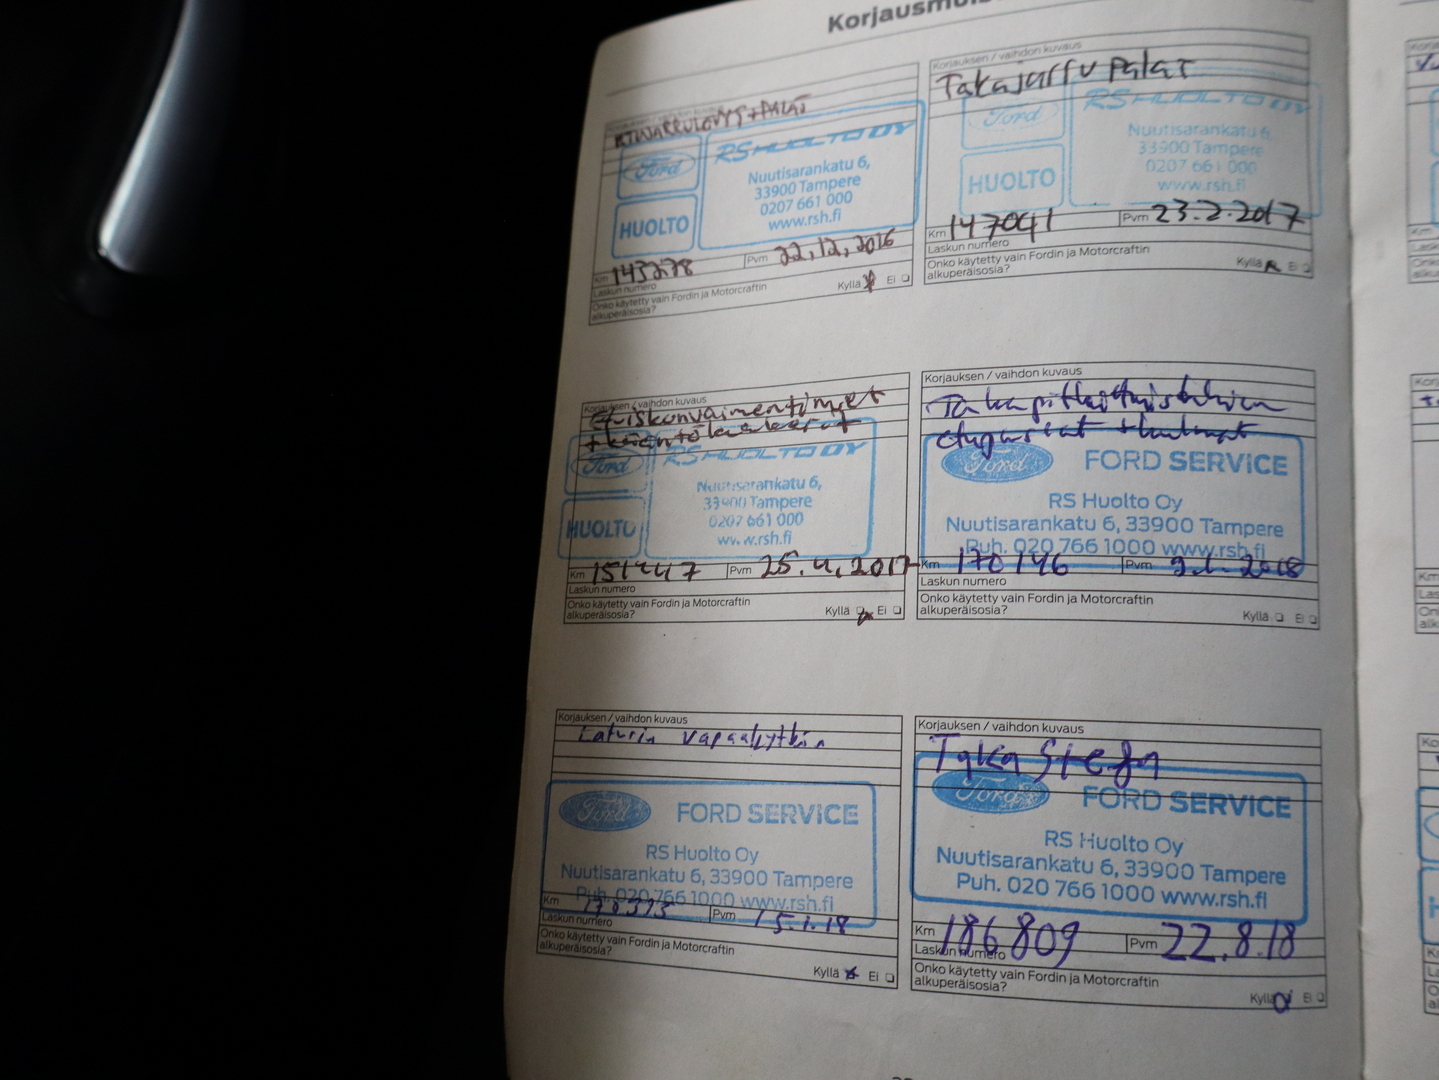 Korjausmuis
ETUJARRULEVYT+PALAT
Ford
RS HUOLTO OY
Nuutisarankatu 6,
33900 Tampere
0207 661 000
www.rsh.fi
HUOLTO
Km 143278 Pvm 22.12.2016
Laskun numero
Onko käytetty vain Fordin ja Motorcraftin Kyllä Ei
alkuperäisosia?
Korjauksen / vaihdon kuvaus
Takajarru palat
Ford
RS HUOLTO OY
Nuutisarankatu 6,
33900 Tampere
0207 661 000
www.rsh.fi
HUOLTO
Km 147041 Pvm 23.2.2017
Laskun numero
Onko käytetty vain Fordin ja Motorcraftin Kyllä Ei
alkuperäisosia?
Korjauksen / vaihdon kuvaus
etuiskunvaimentimet
+kääntölaakerit
Ford
RS HUOLTO OY
Nuutisarankatu 6,
33900 Tampere
0207 661 000
www.rsh.fi
HUOLTO
Km 151447 Pvm 25.4.2017
Laskun numero
Onko käytetty vain Fordin ja Motorcraftin Kyllä Ei
alkuperäisosia?
Korjauksen / vaihdon kuvaus
Taka
Ford FORD SERVICE
RS Huolto Oy
Nuutisarankatu 6, 33900 Tampere
Puh. 020 766 1000 www.rsh.fi
Km 170146 Pvm 9.1.2018
Laskun numero
Onko käytetty vain Fordin ja Motorcraftin
alkuperäisosia? Kyllä Ei
Korjauksen / vaihdon kuvaus
Laturin vapaakytkin
Ford FORD SERVICE
RS Huolto Oy
Nuutisarankatu 6, 33900 Tampere
Puh. 020 766 1000 www.rsh.fi
Km Pvm 15.1.18
Laskun numero
Onko käytetty vain Fordin ja Motorcraftin
alkuperäisosia? Kyllä Ei
Korjauksen / vaihdon kuvaus
Taka
Ford FORD SERVICE
RS Huolto Oy
Nuutisarankatu 6, 33900 Tampere
Puh. 020 766 1000 www.rsh.fi
Km 186809 Pvm 22.8.18
Laskun numero
Onko käytetty vain Fordin ja Motorcraftin
alkuperäisosia? Kyllä Ei